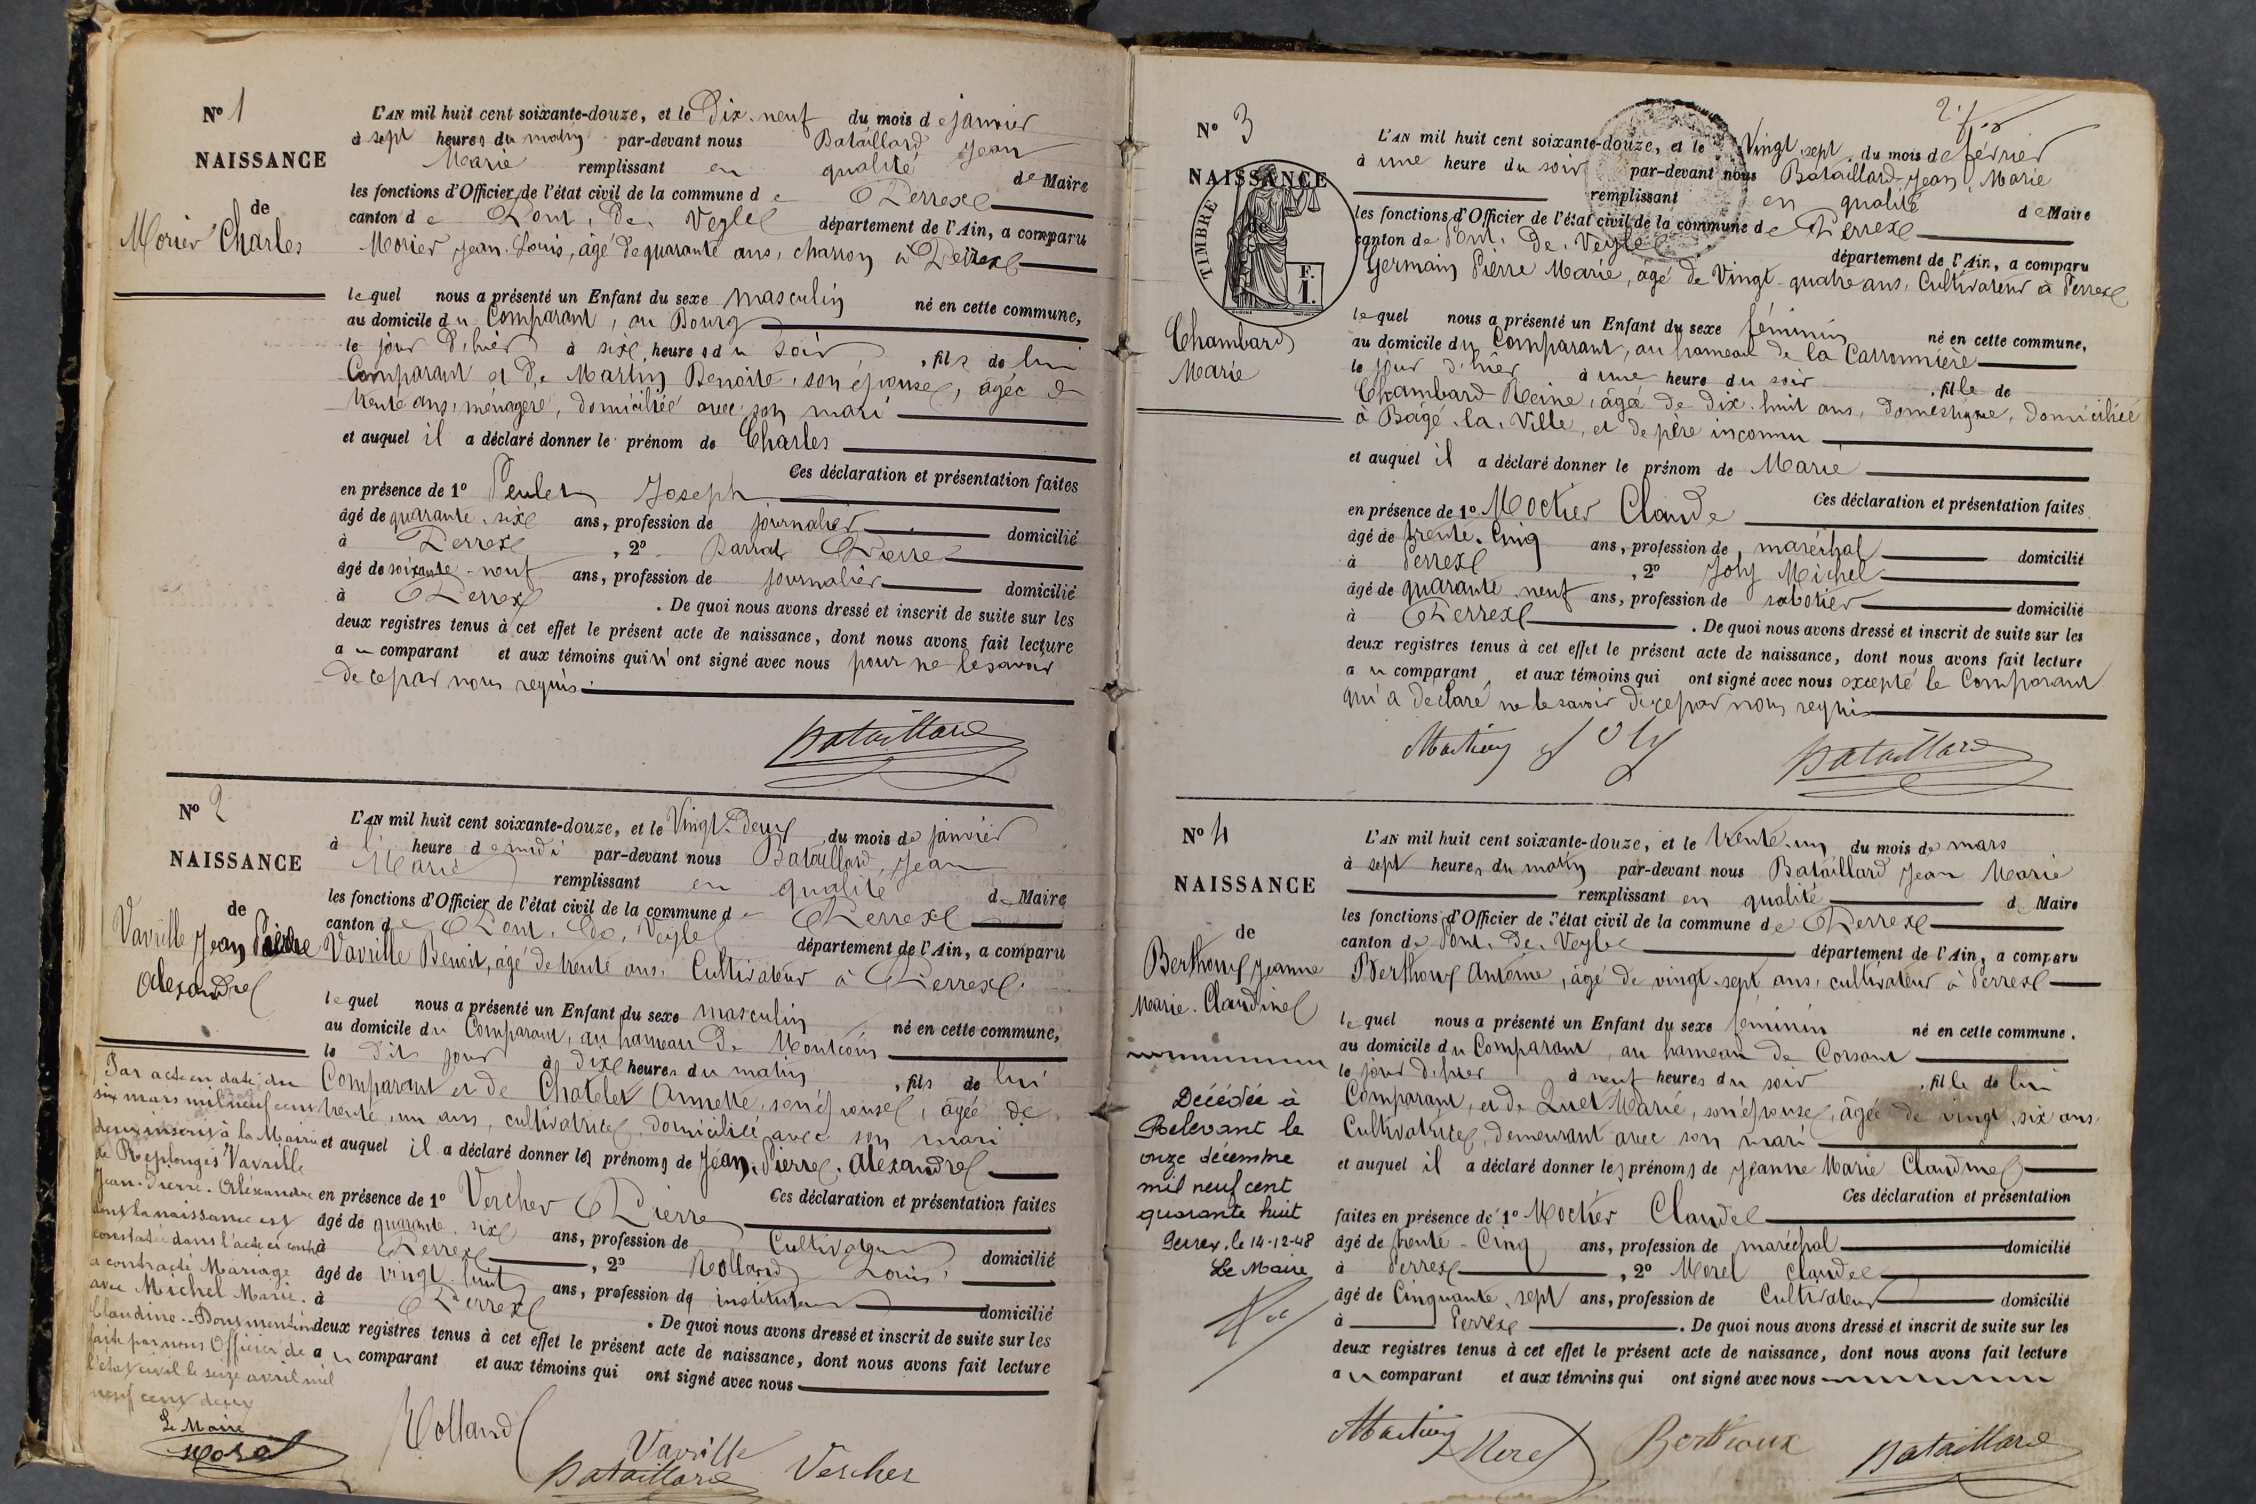 Nº 1
NAISSANCE
de
Morier Charles
L'AN mil huit cent soixante-douze, et le Dix-neuf du mois de janvier
à sept heures du matin par-devant nous Bataillard Jean
Marie remplissant en qualité de Maire
les fonctions d'Officier de l'état civil de la commune de Perrex
canton de Pont. De. Veyle département de l'Ain, a comparu
Morier Jean Louis, âgé de quarante ans, charron à Perrex
lequel nous a présenté un Enfant du sexe masculin né en cette commune,
au domicile du Comparant, au Bourg
le jour d'hier à six heures du soir, fils de lui
Comparant et de Martin Benoite, son épouse, âgée de
trente ans, ménagère, domiciliée avec son mari
et auquel il a déclaré donner le prénom de Charles
Ces déclaration et présentation faites
en présence de 1º Joseph
âgé de quarante-six ans, profession de journalier domicilié
à Perrex, 2º Parrat Pierre
âgé de soixante-neuf ans, profession de journalier domicilié
à Perrex. De quoi nous avons dressé et inscrit de suite sur les
deux registres tenus à cet effet le présent acte de naissance, dont nous avons fait lecture
au comparant et aux témoins qui n'ont signé avec nous pour ne le savoir
de ce par nous requis.
Bataillard
Nº 2
NAISSANCE
de
Vavrille Jean Pierre
Alexandre
L'AN mil huit cent soixante-douze, et le Vingt-deux du mois de janvier
à l' heure de midi par-devant nous Bataillard, Jean
Marie remplissant en qualité de Maire
les fonctions d'Officier de l'état civil de la commune de Perrex
canton de Pont. De. Veyle département de l'Ain, a comparu
Vavrille Benoit, âgé de trente ans, Cultivateur à Perrex.
lequel nous a présenté un Enfant du sexe masculin né en cette commune,
au domicile du Comparant, au hameau de Montcoin
le dit jour à dix heures du matin, fils de lui
Comparant et de Chatelet Annette, son épouse, âgée de
trente, un ans, cultivatrice, domiciliée avec son mari
et auquel il a déclaré donner les prénoms de Jean. Pierre. Alexandre
Ces déclaration et présentation faites
en présence de 1º Vercher Pierre
âgé de quarante-six ans, profession de Cultivateur domicilié
à Perrex, 2º Rolland Louis
âgé de vingt huit ans, profession de instituteur domicilié
à Perrex. De quoi nous avons dressé et inscrit de suite sur les
deux registres tenus à cet effet le présent acte de naissance, dont nous avons fait lecture
au comparant et aux témoins qui ont signé avec nous
Par acte en date du
six mars mil neuf cent
deux inscrit à la Mairie
de Replonges Vavrille
Jean-Pierre-Alexandre
dont la naissance est
constatée dans l'acte ci contre
a contracté Mariage
avec Michel Marie
Claudine. Dont mention
faite par nous Officier de
l'état civil le seize avril mil
neuf cent deux
Le Maire
Morel
Rolland
Vavrille
Bataillard Vercher
Nº 3
NAISSANCE
de
TIMBRE
F.
1.
Chambard
Marie
L'AN mil huit cent soixante-douze, et le Vingt-sept du mois de février
à une heure du soir par-devant nous Bataillard Jean, Marie
remplissant en qualité de Maire
les fonctions d'Officier de l'état civil de la commune de Perrex
canton de Pont. De. Veyle département de l'Ain, a comparu
Germain Pierre Marie, âgé de Vingt-quatre ans, Cultivateur à Perrex
lequel nous a présenté un Enfant du sexe féminin né en cette commune,
au domicile du Comparant, au hameau de la Carronnière
le jour d'hier à une heure du soir, fille de
Chambard Reine, âgée de dix-huit ans, domestique, domiciliée
à Bâgé. la. Ville, et de père inconnu
et auquel il a déclaré donner le prénom de Marie
Ces déclaration et présentation faites
en présence de 1º Mortier Claude
âgé de trente-Cinq ans, profession de maréchal domicilié
à Perrex, 2º Joly Michel
âgé de quarante-neuf ans, profession de sabotier domicilié
à Perrex. De quoi nous avons dressé et inscrit de suite sur les
deux registres tenus à cet effet le présent acte de naissance, dont nous avons fait lecture
au comparant et aux témoins qui ont signé avec nous excepté le Comparant
qui a déclaré ne le savoir de ce par nous requis
Joly Bataillard
Nº 4
NAISSANCE
de
Berthoux Jeanne
Marie. Claudine
L'AN mil huit cent soixante-douze, et le trente-un du mois de mars
à sept heures du matin par-devant nous Bataillard Jean Marie
remplissant en qualité de Maire
les fonctions d'Officier de l'état civil de la commune de Perrex
canton de Pont. De. Veyle département de l'Ain, a comparu
Berthoux Antoine, âgé de vingt-sept ans, cultivateur à Perrex
lequel nous a présenté un Enfant du sexe féminin né en cette commune.
au domicile du Comparant, au hameau de Corsant
le jour d'hier à neuf heures du soir, fille de lui
Comparant, et de Luet Marie, son épouse, âgée de vingt-six ans,
Cultivatrice, demeurant avec son mari
et auquel il a déclaré donner les prénoms de Jeanne Marie Claudine
Ces déclaration et présentation
faites en présence de 1º Mortier Claude
âgé de trente-Cinq ans, profession de maréchal domicilié
à Perrex, 2º Morel Claude
âgé de Cinquante-sept ans, profession de Cultivateur domicilié
à Perrex. De quoi nous avons dressé et inscrit de suite sur les
deux registres tenus à cet effet le présent acte de naissance, dont nous avons fait lecture
au comparant et aux témoins qui ont signé avec nous
Décédée à
Polevant le
onze décembre
mil neuf cent
quarante huit
Perrex, le 14-12-48
Le Maire
Morel Berthoux Bataillard